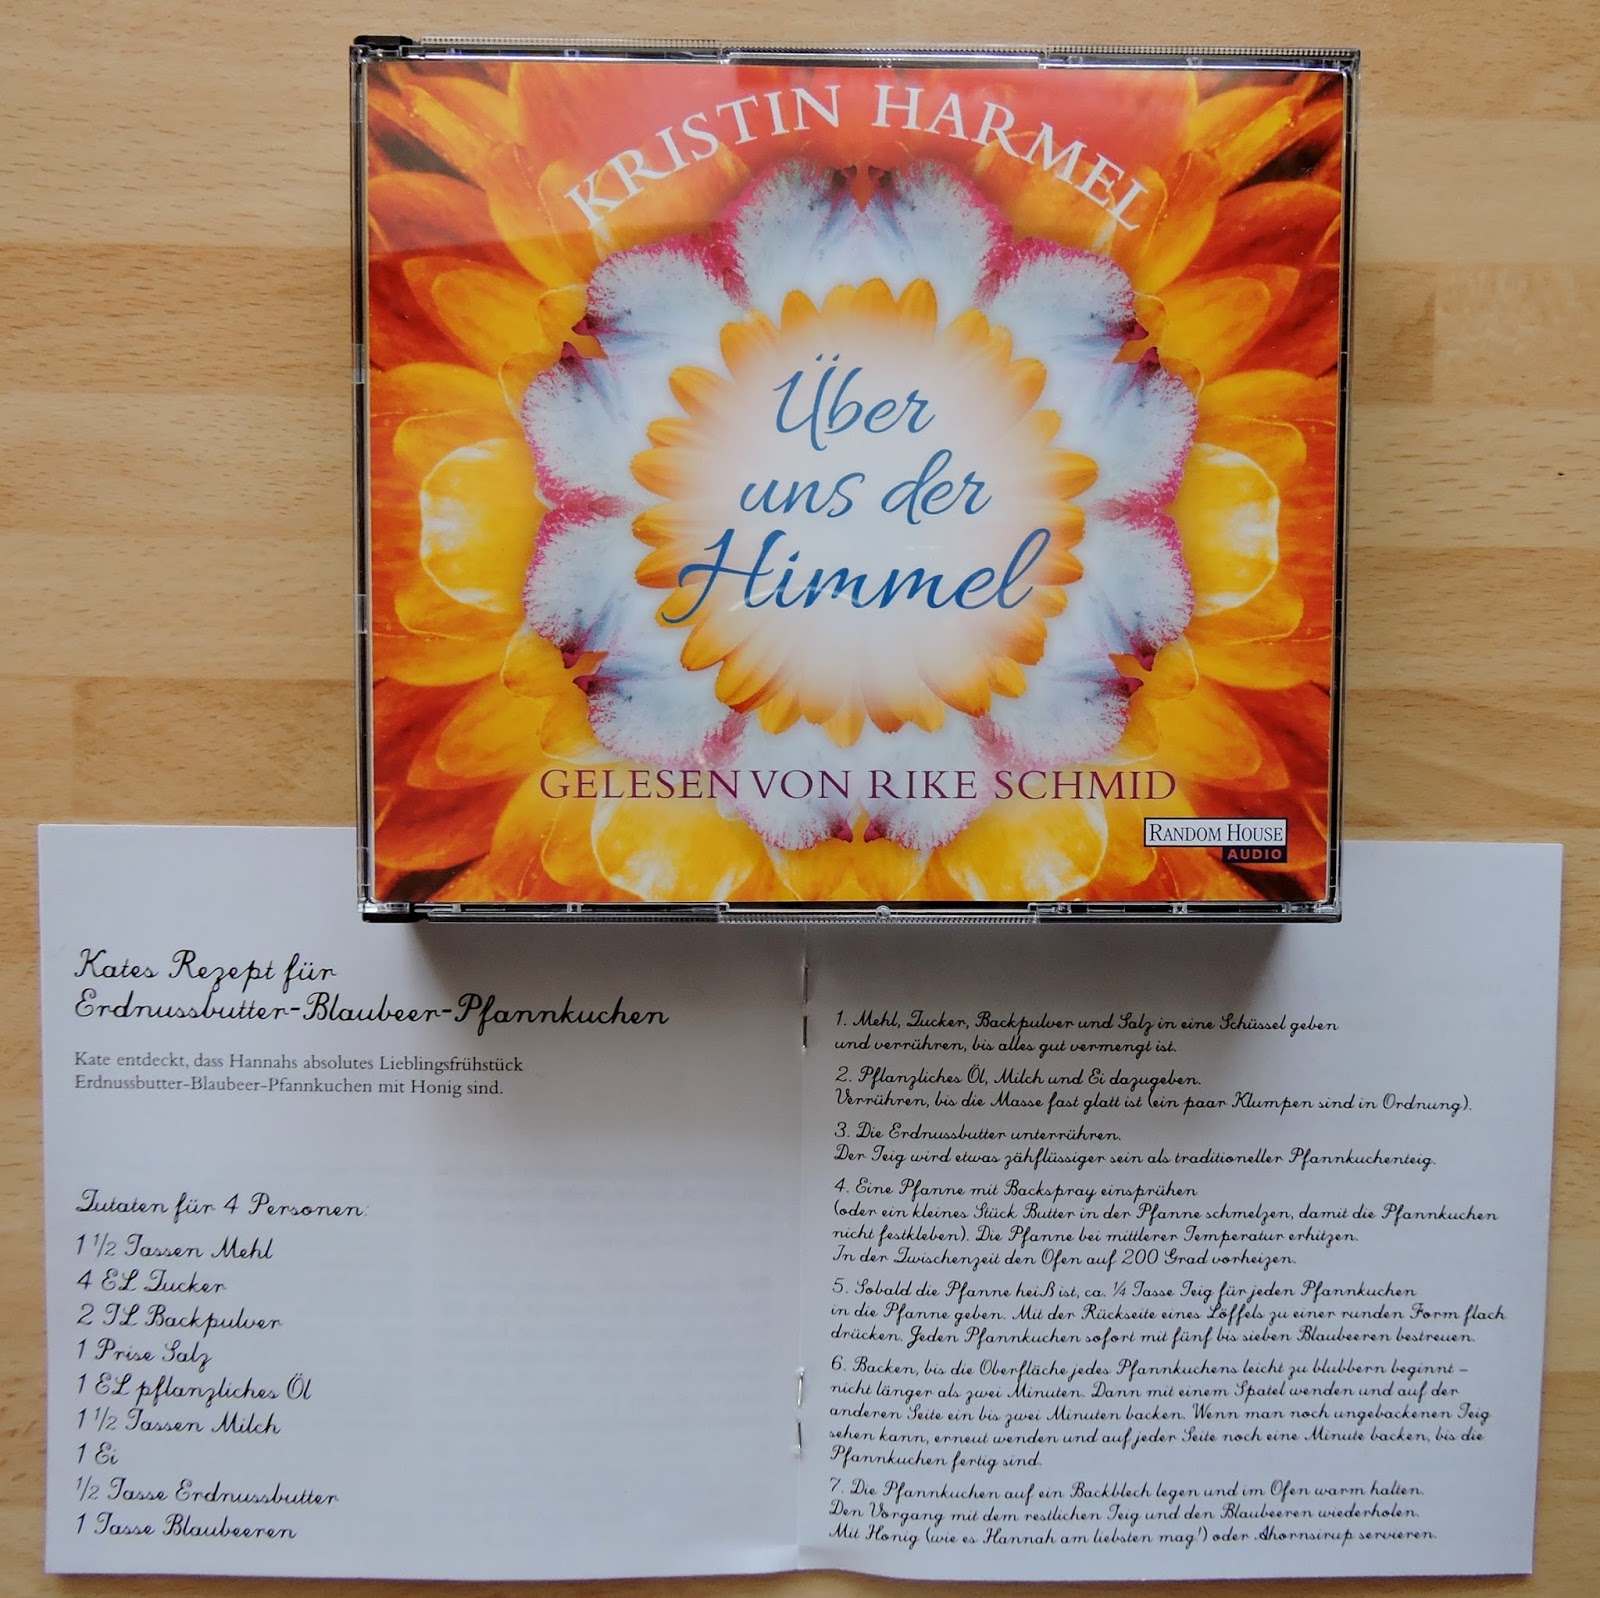 KRISTIN HARMEL
Über
uns der
Himmel
GELESEN VON RIKE SCHMID
RANDOM HOUSE
AUDIO
Kates Rezept für
Erdnussbutter-Blaubeer-Pfannkuchen
Kate entdeckt, dass Hannahs absolutes Lieblingsfrühstück
Erdnussbutter-Blaubeer-Pfannkuchen mit Honig sind.
Zutaten für 4 Personen:
1 1/2 Tassen Mehl
4 EL Zucker
2 TL Backpulver
1 Prise Salz
1 EL pflanzliches Öl
1 1/2 Tassen Milch
1 Ei
1/2 Tasse Erdnussbutter
1 Tasse Blaubeeren
1. Mehl, Zucker, Backpulver und Salz in eine Schüssel geben
und verrühren, bis alles gut vermengt ist.
2. Pflanzliches Öl, Milch und Ei dazugeben.
Verrühren, bis die Masse fast glatt ist (ein paar Klumpen sind in Ordnung).
3. Die Erdnussbutter unterrühren.
Der Teig wird etwas zähflüssiger sein als traditioneller Pfannkuchenteig.
4. Eine Pfanne mit Backspray einsprühen
(oder ein kleines Stück Butter in der Pfanne schmelzen, damit die Pfannkuchen
nicht festkleben). Die Pfanne bei mittlerer Temperatur erhitzen.
In der Zwischenzeit den Ofen auf 200 Grad vorheizen.
5. Sobald die Pfanne heiß ist, ca. ¼ Tasse Teig für jeden Pfannkuchen
in die Pfanne geben. Mit der Rückseite eines Löffels zu einer runden Form flach
drücken. Jeden Pfannkuchen sofort mit fünf bis sieben Blaubeeren bestreuen.
6. Backen, bis die Oberfläche jedes Pfannkuchens leicht zu blubbern beginnt –
nicht länger als zwei Minuten. Dann mit einem Spatel wenden und auf der
anderen Seite ein bis zwei Minuten backen. Wenn man noch ungebackenen Teig
sehen kann, erneut wenden und auf jeder Seite noch eine Minute backen, bis die
Pfannkuchen fertig sind.
7. Die Pfannkuchen auf ein Backblech legen und im Ofen warm halten.
Den Vorgang mit dem restlichen Teig und den Blaubeeren wiederholen.
Mit Honig (wie es Hannah am liebsten mag!) oder Ahornsirup servieren.